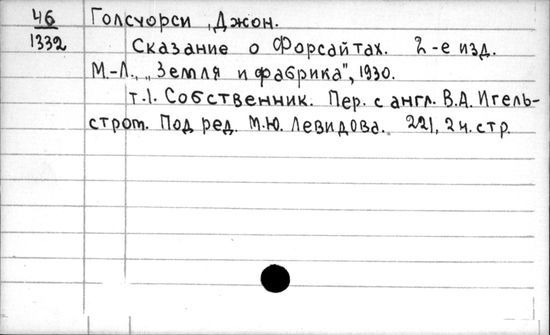 46 Голсуорси, Джон.
1332 Сказание о Форсайтах. 2-е изд.
М.-Л., „Земля и фабрика", 1930.
т.1. Собственник. Пер. с англ. В.А. Игель-
стром. Под ред. М.Ю. Левидова. 221, 2 н. стр.